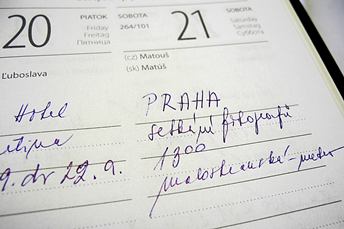 20 PIATOK SOBOTA 21
Friday 264/101 Saturday
Freitag Samstag
Пятница Суббота
(cz) Matouš
Ľuboslava (sk) Matúš
Hotel PRAHA
setkání fotografů
1300
9. do 22.9. malostranská-metro